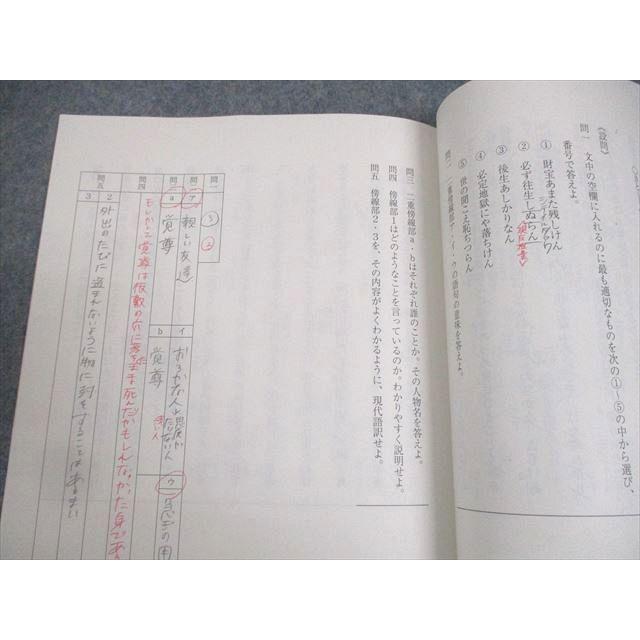 《設問》
問一 文中の空欄に入れるのに最も適切なものを次の①〜⑤の中から選び、
番号で答えよ。
① 財宝あまた残しけん
② 必ず往生しぬらん
③ 後生あしかりなん
④ 必定地獄にや落ちけん
⑤ 世の聞こえ恥ぢつらん
問二 二重傍線部ア・イ・ウの語句の意味を答えよ。
問三 二重傍線部a・bはそれぞれ誰のことか。その人物名を答えよ。
問四 傍線部1はどのようなことを言っているのか。わかりやすく説明せよ。
問五 傍線部2・3を、その内容がよくわかるように、現代語訳せよ。
問一 ③ ②
ア 親しい友達
イ おろかな人
ウ
問三 a 覚尊
b 覚尊
問四 もしかして覚尊は板敷の穴に落ちたまま死んだかもしれなかった身であ
問五 2 外出のたびに盗まれないように物に封をすることはあるまい
3